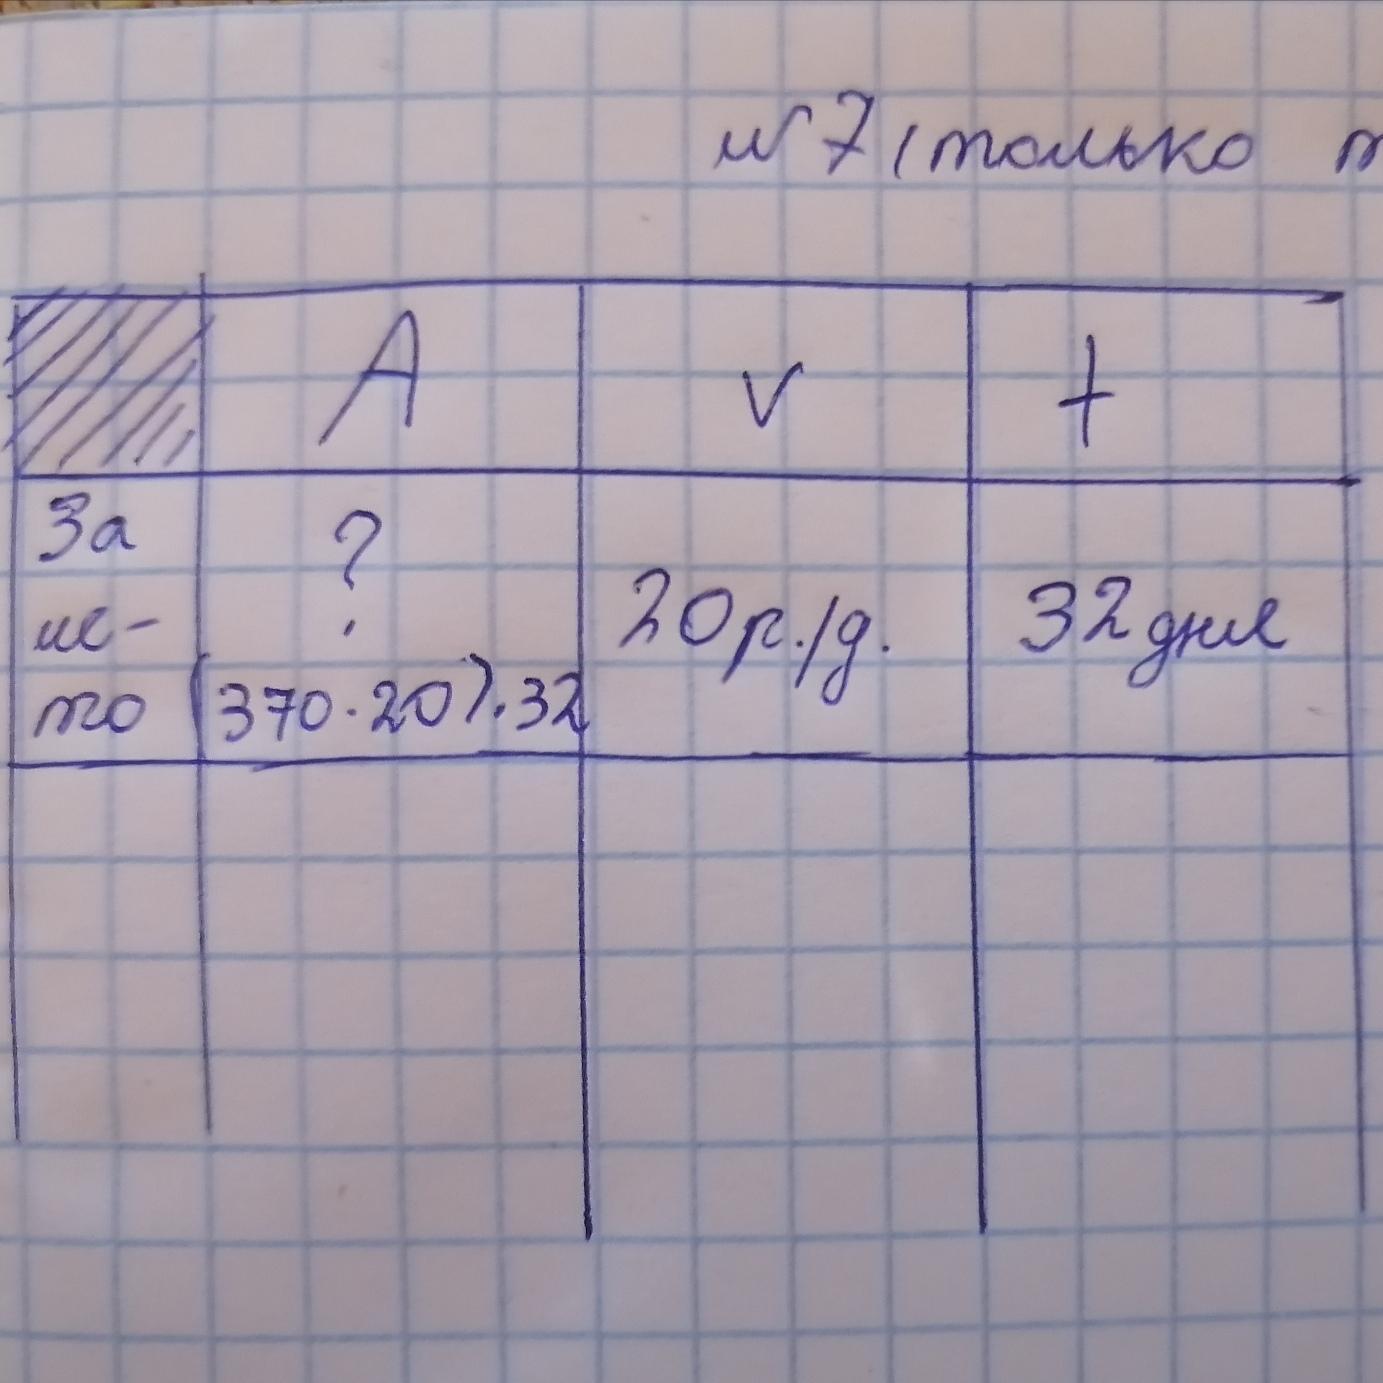 №7 (только т
A v t
За
ле-
то
?
(370·20)·32
20р./д.
32 дня